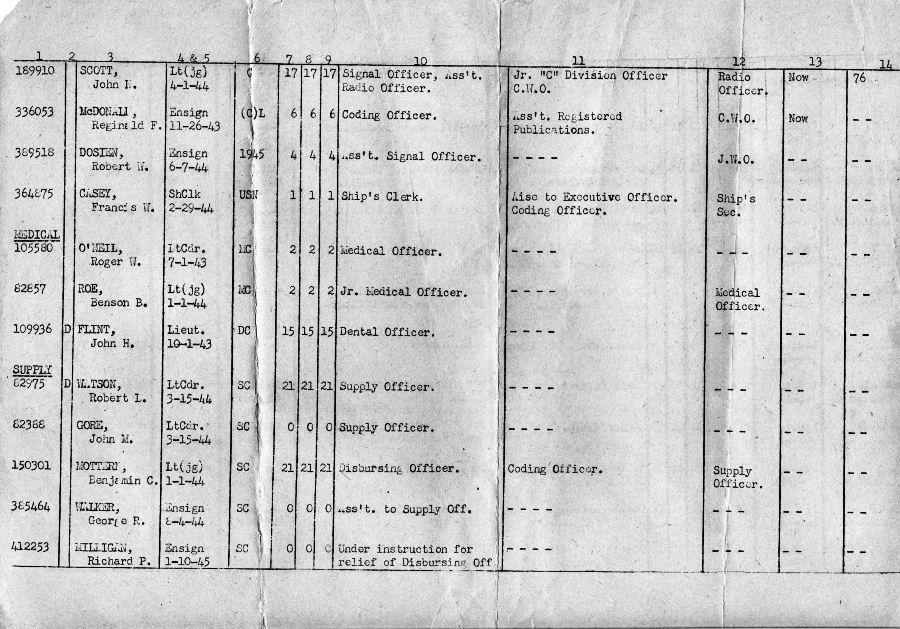 1 2 3 4 & 5 6 7 8 9 10 11 12 13 14
189910 SCOTT, Lt(jg) C 17 17 17 Signal Officer, Ass't. Jr. "C" Division Officer Radio Now 76
John 4-1-44 Radio Officer. C.W.O. Officer.
336053 McDONALD, Ensign (C)L 6 6 6 Coding Officer. Ass't. Registered C.W.O. Now --
Reginald F. 11-26-43 Publications.
389518 Ensign 1945 4 4 4 Ass't. Signal Officer. ---- J.W.O. -- --
Robert W. 6-7-44
364875 CASEY, ShClk USN 1 1 1 Ship's Clerk. Aise to Executive Officer. Ship's -- --
Francis W. 2-29-44 Coding Officer. Sec.
MEDICAL
105580 O'NEIL, LtCdr. MC 2 2 2 Medical Officer. ---- --- -- --
Roger W. 7-1-43
82857 ROE, Lt(jg) MC 2 2 2 Jr. Medical Officer. ---- Medical -- --
Benson B. 1-1-44 Officer.
109936 D FLINT, Lieut. DC 15 15 15 Dental Officer. ---- --- -- --
John H. 10-1-43
SUPPLY
82975 D WATSON, LtCdr. SC 21 21 21 Supply Officer. ---- --- -- --
Robert L. 3-15-44
82388 GORE, LtCdr. SC 0 0 0 Supply Officer. ---- --- -- --
John M. 3-15-44
150301 Lt(jg) SC 21 21 21 Disbursing Officer. Coding Officer. Supply -- --
Benjamin C. 1-1-44 Officer.
385464 WALKER, Ensign SC 0 0 0 Ass't. to Supply Off. ---- --- -- --
George R. 8-4-44
412253 MILLIGAN, Ensign SC 0 0 0 Under instruction for ---- --- -- --
Richard P. 1-10-45 relief of Disbursing Off